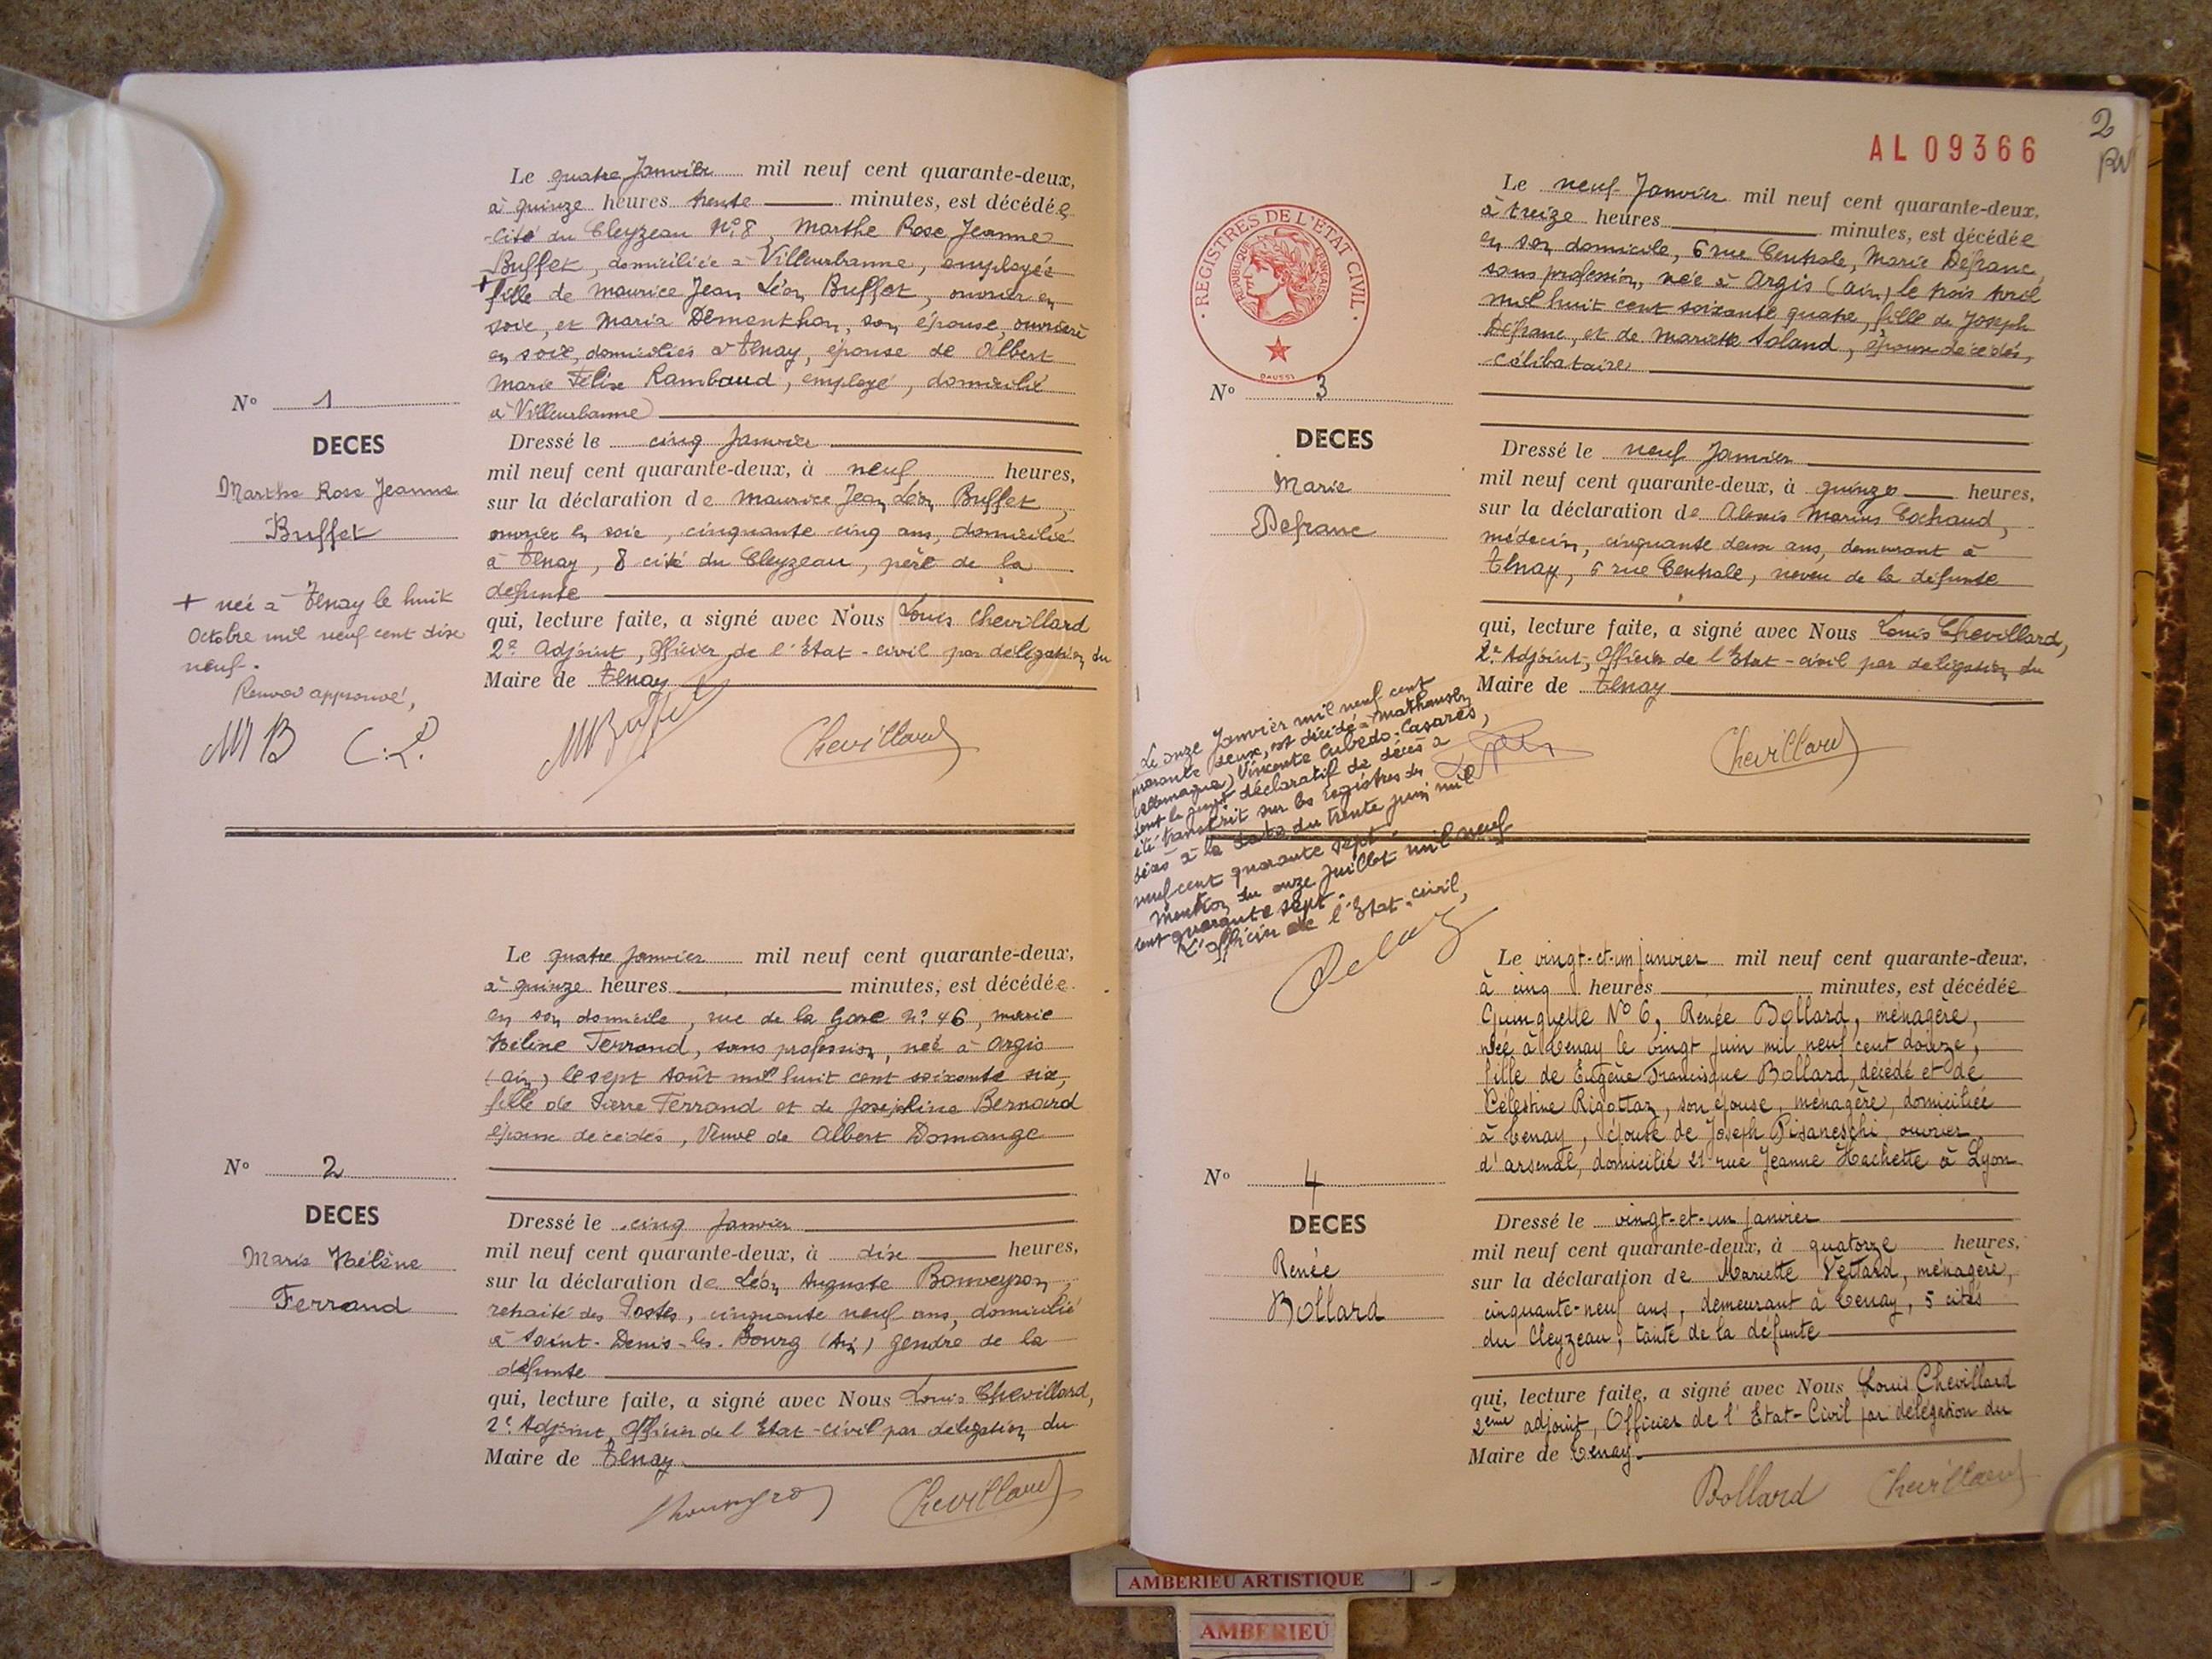 Le quatre Janvier mil neuf cent quarante-deux,
à quinze heures trente minutes, est décédée
cité du Cleyzeau N° 8, Marthe Rose Jeanne
Buffet, domiciliée à Villeurbanne, employée
+ fille de Maurice Jean Léon Buffet, ouvrier en
soie, et Maria Démonthon, son épouse, ouvrière
en soie, domiciliés à Tenay, épouse de Albert
Marie Félix Rambaud, employé, domicilié
à Villeurbanne
N° 1
DECES
Marthe Rose Jeanne
Buffet
Dressé le cinq Janvier
mil neuf cent quarante-deux, à neuf heures,
sur la déclaration de Maurice Jean Léon Buffet,
ouvrier en soie, cinquante cinq ans, domicilié
à Tenay, 8 cité du Cleyzeau, père de la
défunte
qui, lecture faite, a signé avec Nous Louis Chevillard
2e Adjoint, Officier de l'Etat-civil par délégation du
Maire de Tenay
+ née à Tenay le huit
Octobre mil neuf cent dix
neuf.
Renvoi approuvé,
MB C.L.
MBuffet Chevillard
Le quatre Janvier mil neuf cent quarante-deux,
à quinze heures minutes, est décédée
en son domicile, rue de la Gare N° 46, Marie
Hélène Ferrand, sans profession, née à Argis
(Ain) le sept Août mil huit cent soixante six,
fille de Pierre Ferrand et de Joséphine Bernard
époux décédés, Veuve de Albert Domange
N° 2
DECES
Marie Hélène
Ferrand
Dressé le cinq Janvier
mil neuf cent quarante-deux, à dix heures,
sur la déclaration de Léon Auguste Bonveyron,
retraité des Postes, cinquante neuf ans, domicilié
à Saint-Denis-les-Bourg (Ain) gendre de la
défunte
qui, lecture faite, a signé avec Nous Louis Chevillard,
2e Adjoint, Officier de l'Etat-civil par délégation du
Maire de Tenay
Chevillard
2
AL 09366
REGISTRES DE L'ETAT CIVIL
REPUBLIQUE FRANÇAISE
DAUSSI
Le neuf Janvier mil neuf cent quarante-deux,
à treize heures minutes, est décédée
en son domicile, 6 rue Centrale, Marie Defranc,
sans profession, née à Argis (Ain) le trois Avril
mil huit cent soixante quatre, fille de Joseph
Defranc, et de Mariette Saland, époux décédés,
célibataire
N° 3
DECES
Marie
Defranc
Dressé le neuf Janvier
mil neuf cent quarante-deux, à quinze heures,
sur la déclaration de Alexis Marius Cochaud,
médecin, cinquante deux ans, demeurant à
Tenay, 6 rue Centrale, neveu de la défunte
qui, lecture faite, a signé avec Nous Louis Chevillard,
2e Adjoint, Officier de l'Etat-civil par délégation du
Maire de Tenay
Chevillard
Le onze Janvier mil neuf cent
quarante deux, est décédé à Mathausen
(Allemagne) Vincente Cubedo-Casares,
dont le jugt déclaratif de décès a
été transcrit sur les registres des
décès à la date du trente juin mil
neuf cent quarante sept.
Mention du onze Juillet mil neuf
cent quarante sept.
L'officier de l'Etat-civil,
Le vingt-et-un janvier mil neuf cent quarante-deux,
à cinq heures minutes, est décédée
Guinguette N° 6, Renée Bollard, ménagère,
née à Tenay le vingt juin mil neuf cent douze,
fille de Eugène Francisque Bollard, décédé et de
Célestine Rigottaz, son épouse, ménagère, domiciliée
à Tenay, épouse de Joseph Pisaneschi, ouvrier
d'arsenal, domicilié 21 rue Jeanne Hachette à Lyon
N° 4
DECES
Renée
Bollard
Dressé le vingt-et-un janvier
mil neuf cent quarante-deux, à quatorze heures,
sur la déclaration de Mariette Vettard, ménagère,
cinquante-neuf ans, demeurant à Tenay, 5 cités
du Cleyzeau, tante de la défunte
qui, lecture faite, a signé avec Nous Louis Chevillard
2ème adjoint, Officier de l'Etat-Civil par délégation du
Maire de Tenay.
Bollard Chevillard
AMBERIEU ARTISTIQUE
AMBERIEU